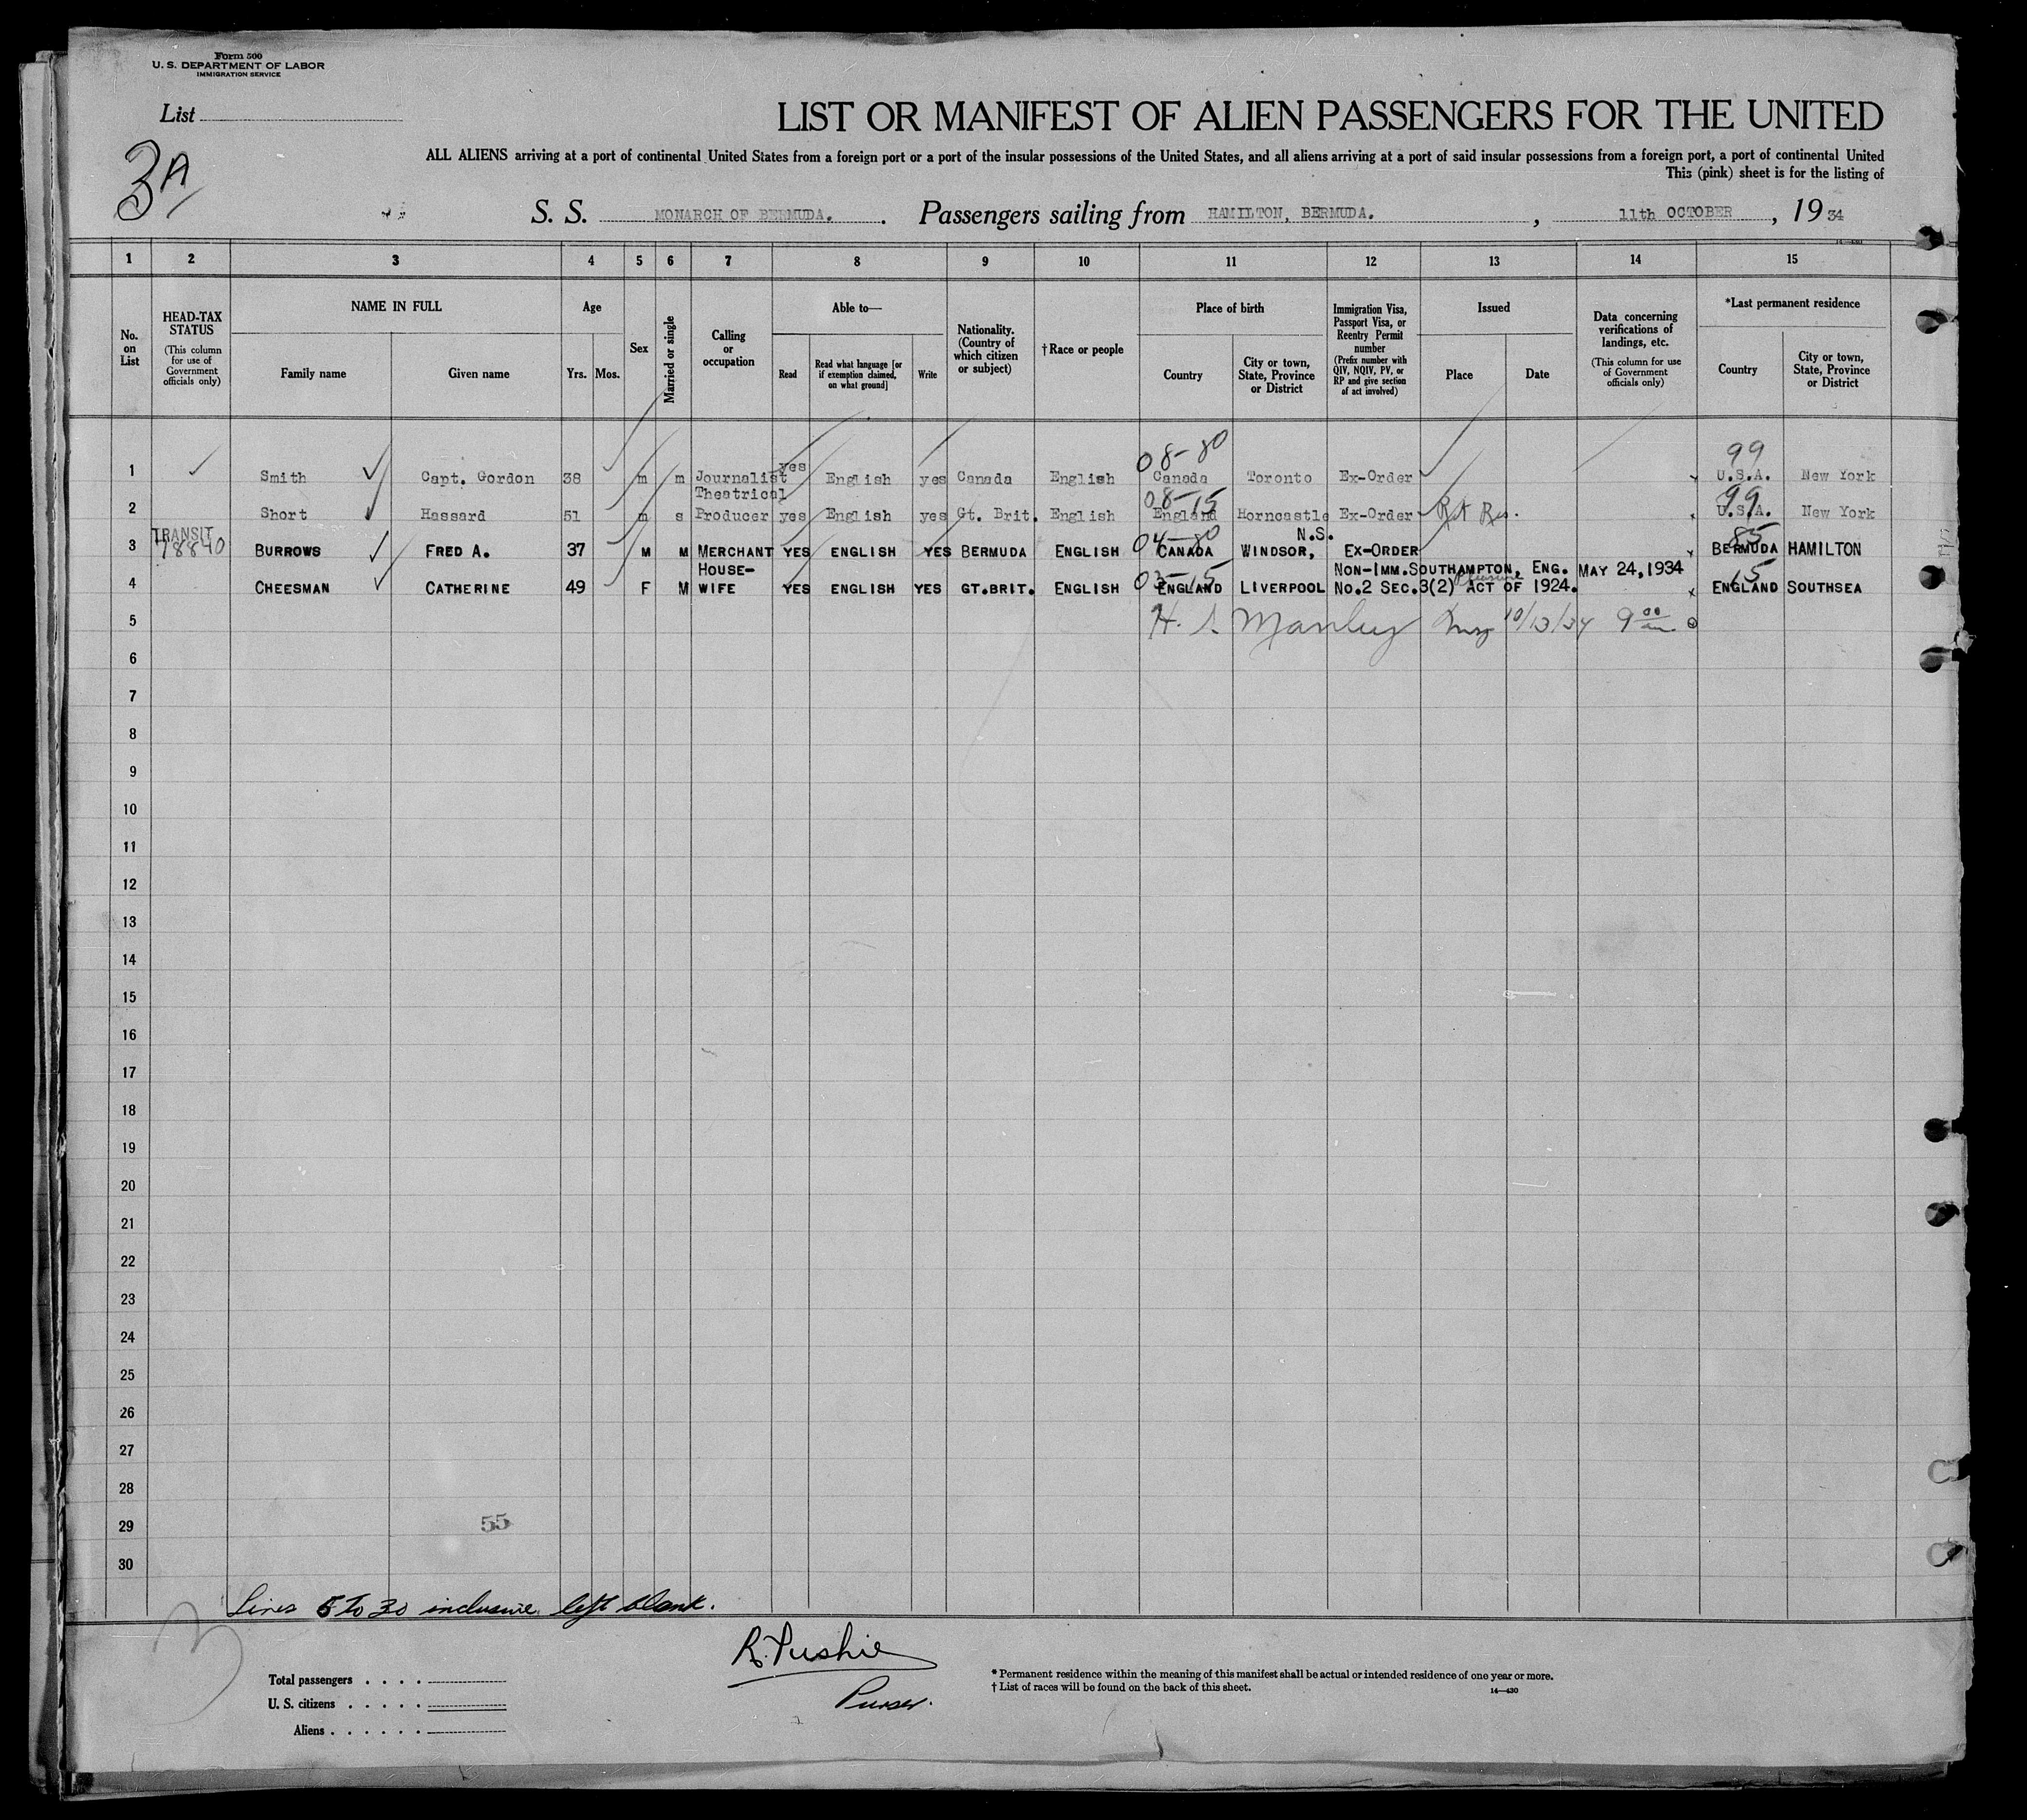 Form 500
U. S. DEPARTMENT OF LABOR
IMMIGRATION SERVICE
List
3A
LIST OR MANIFEST OF ALIEN PASSENGERS FOR THE UNITED
ALL ALIENS arriving at a port of continental United States from a foreign port or a port of the insular possessions of the United States, and all aliens arriving at a port of said insular possessions from a foreign port, a port of continental United
This (pink) sheet is for the listing of
S. S. MONARCH OF BERMUDA. Passengers sailing from HAMILTON, BERMUDA. , 11th OCTOBER , 19 34
14—430
1 2 3 4 5 6 7 8 9 10 11 12 13 14 15
No. on List
HEAD-TAX STATUS (This column for use of Government officials only)
NAME IN FULL
Family name Given name
Age
Yrs. Mos.
Sex
Married or single
Calling or occupation
Able to—
Read Read what language [or if exemption claimed, on what ground] Write
Nationality. (Country of which citizen or subject)
†Race or people
Place of birth
Country City or town, State, Province or District
Immigration Visa, Passport Visa, or Reentry Permit number (Prefix number with QIV, NQIV, PV, or RP and give section of act involved)
Issued
Place Date
Data concerning verifications of landings, etc. (This column for use of Government officials only)
*Last permanent residence
Country City or town, State, Province or District
08-80 99
1 Smith Capt. Gordon 38 m m Journalist yes English yes Canada English Canada Toronto Ex-Order U.S.A. New York
08-15 99
2 Short Hassard 51 m s Theatrical Producer yes English yes Gt. Brit. English England Horncastle Ex-Order U.S.A. New York
TRANSIT 78840 04-80 85
3 BURROWS FRED A. 37 M M MERCHANT YES ENGLISH YES BERMUDA ENGLISH CANADA WINDSOR, N.S. EX-ORDER BERMUDA HAMILTON
03-15 15
4 CHEESMAN CATHERINE 49 F M HOUSE-WIFE YES ENGLISH YES GT.BRIT. ENGLISH ENGLAND LIVERPOOL NON-IMM. SOUTHAMPTON, ENG. MAY 24, 1934 No.2 SEC.3(2) Pleasure ACT OF 1924. ENGLAND SOUTHSEA
5 H. S. Manley 10/13/34 9 00 am
6
7
8
9
10
11
12
13
14
15
16
17
18
19
20
21
22
23
24
25
26
27
28
29
55
30
Lines 5 to 30 inclusive left blank.
3
R. Pushie
Purser.
Total passengers
U. S. citizens
Aliens
* Permanent residence within the meaning of this manifest shall be actual or intended residence of one year or more.
† List of races will be found on the back of this sheet.
14—430